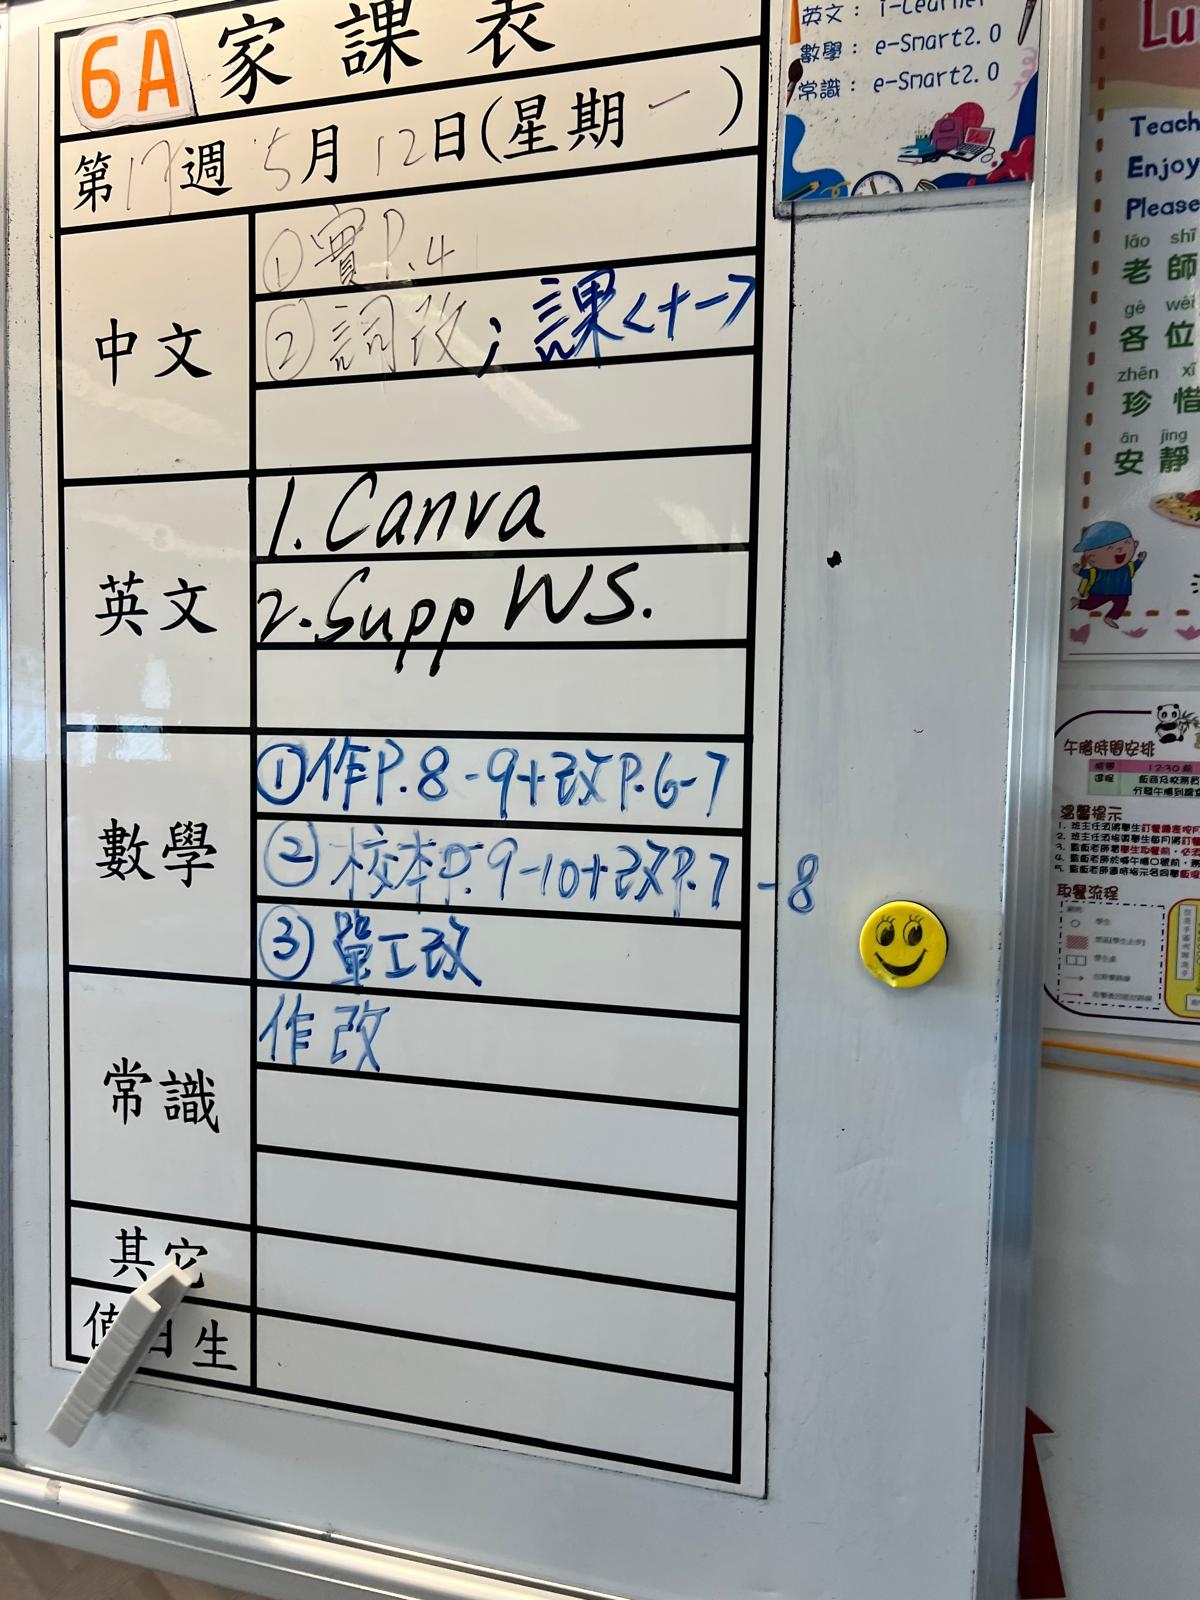 6A 家課表
第17週 5月12日(星期一)
中文
①實P.4
②詞改；課<十一>
英文
1.Canva
2.Supp WS.
數學
①作P.8-9+改P.6-7
②校本P.9-10+改P.7-8
③單工改
常識
作改
其它
值日生
英文： i-Learner
數學： e-Smart2.0
常識： e-Smart2.0
Lu
Teach
Enjoy
Please
lǎo shī
老師
gè wèi
各位
zhēn xī
珍惜
ān jìng
安靜
午膳時間安排
12:30
溫馨提示
取餐流程